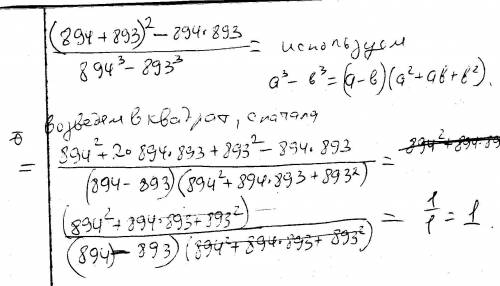 (894 + 893)² − 894·893 / 894³ − 893³ = используем
a³ − b³ = (a − b)(a² + ab + b²).
возведем в квадрат, сначала
= 894² + 2·894·893 + 893² − 894·893 / (894 − 893)(894² + 894·893 + 893²) = 894² + 894·89
(894² + 894·893 + 893²) / (894 − 893)(894² + 894·893 + 893²) = 1/1 = 1.